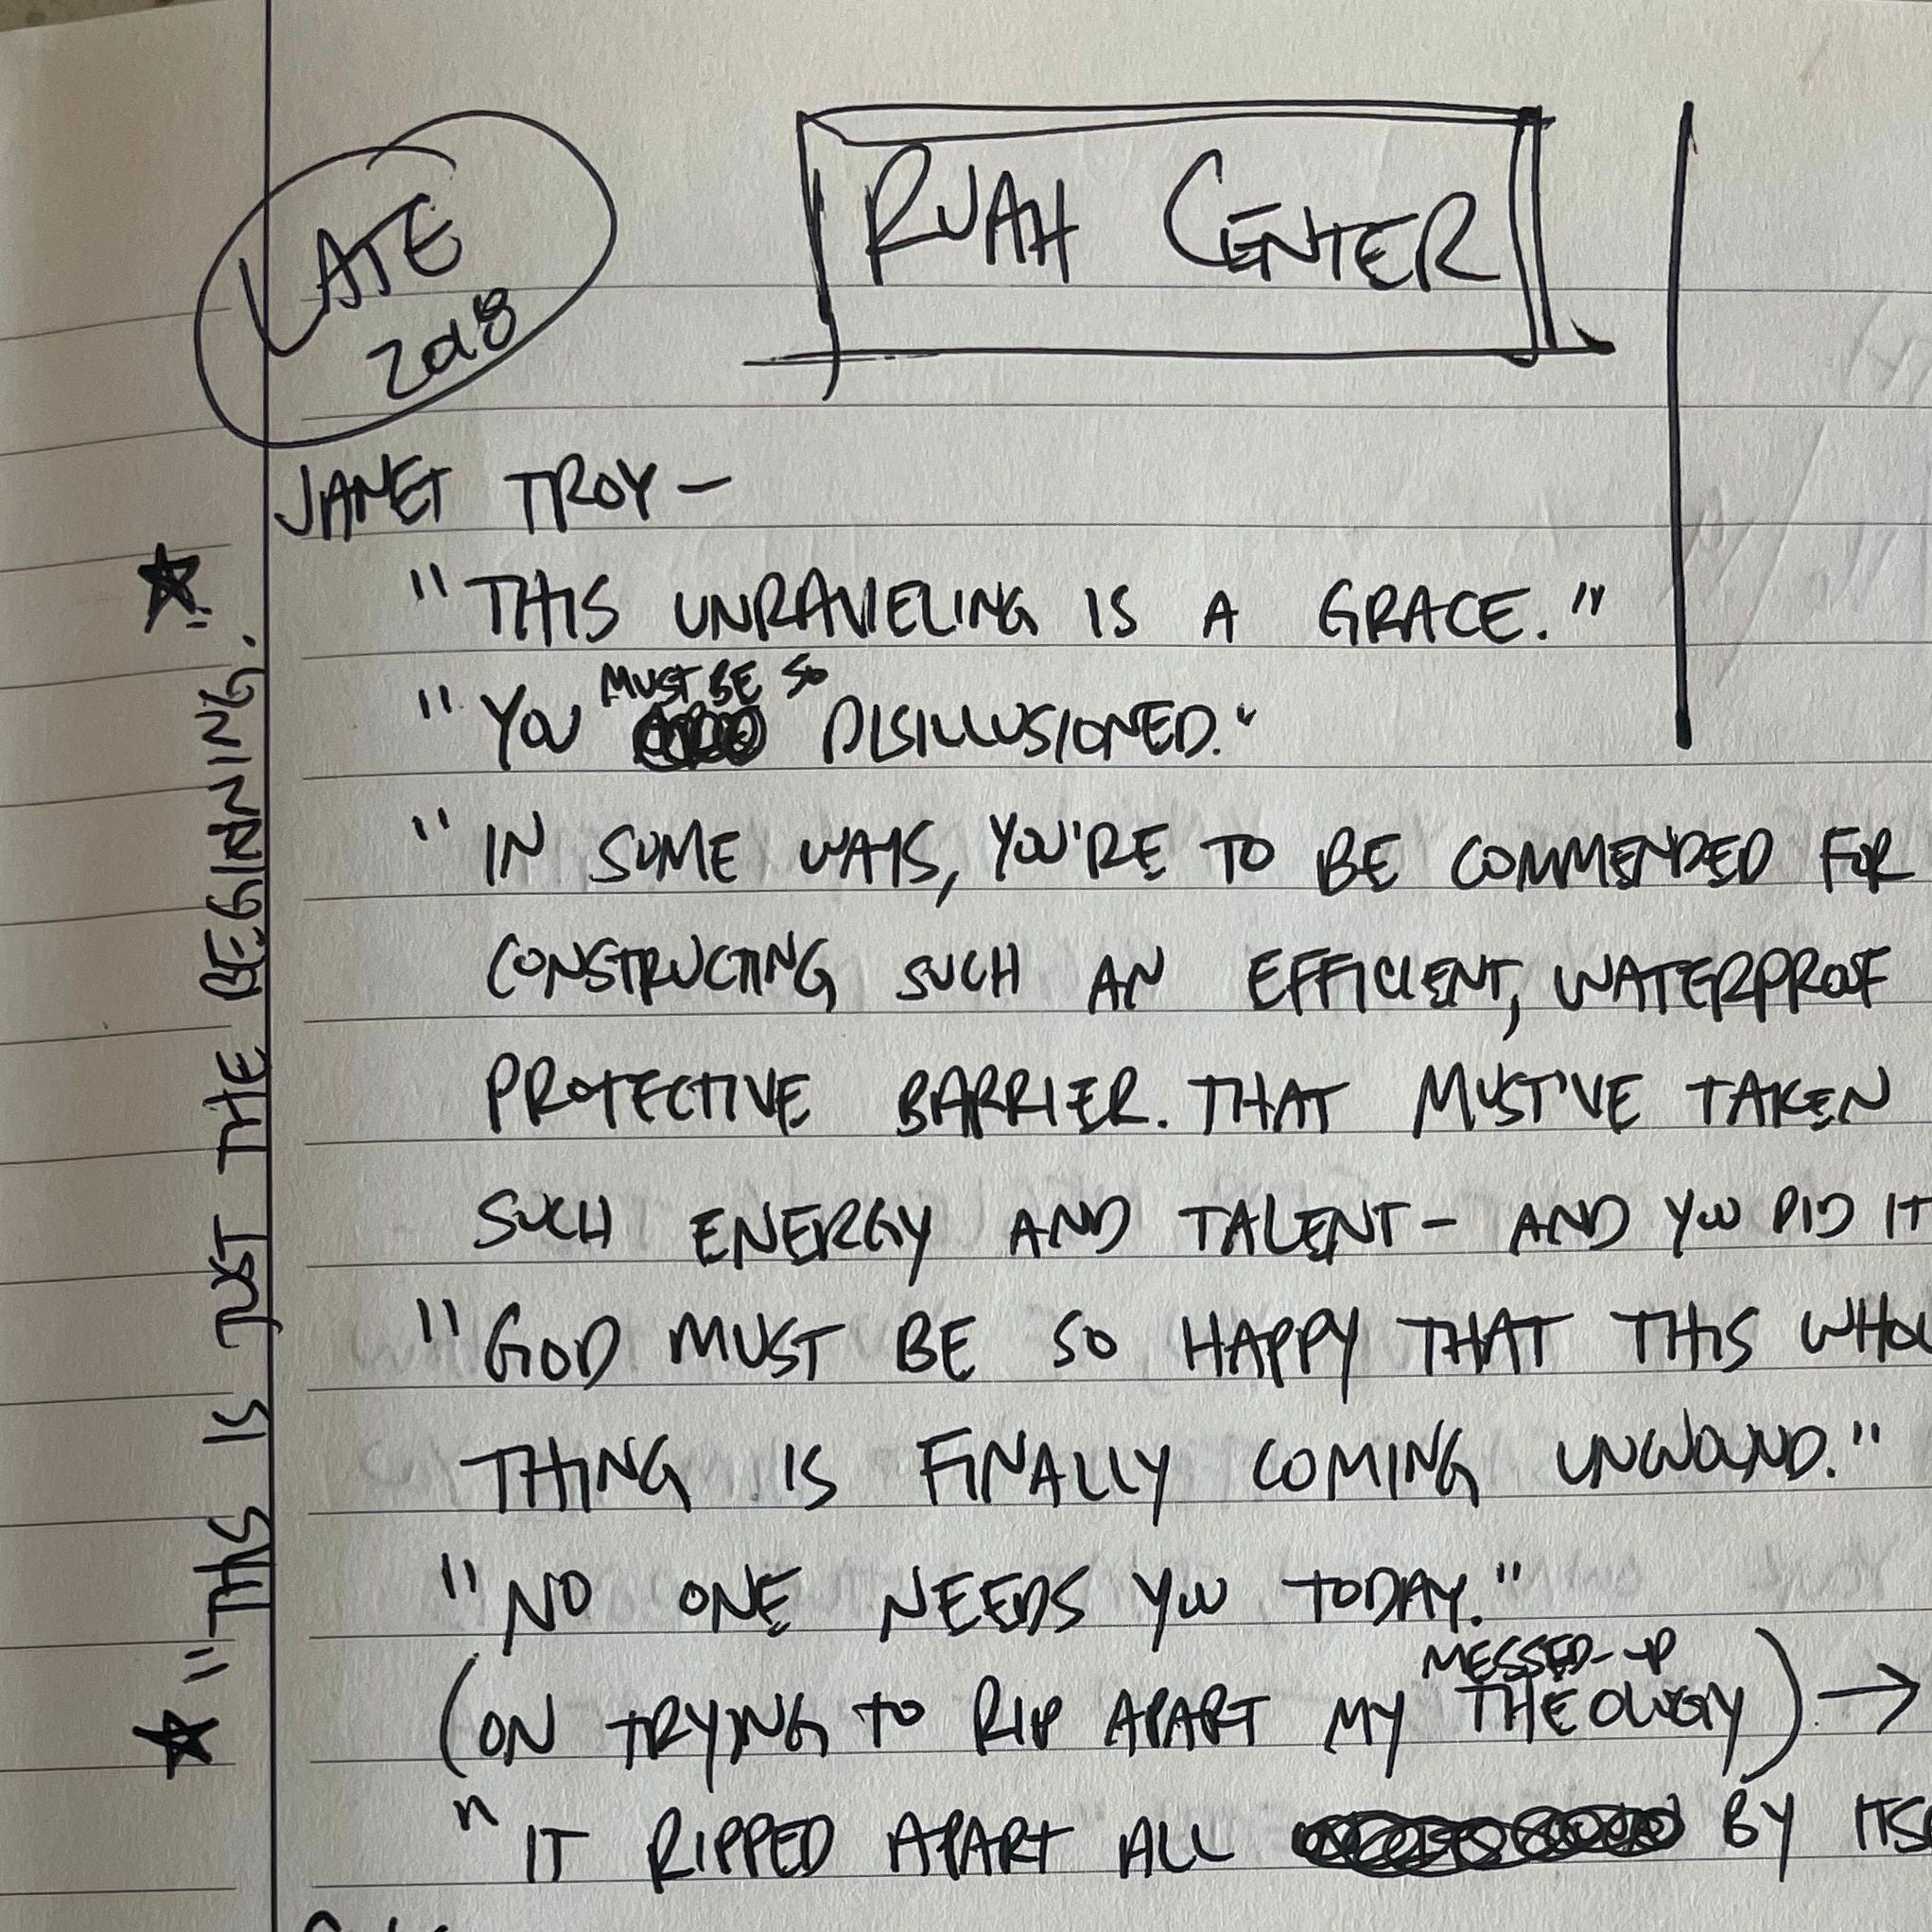 LATE
2018
RUAH CENTER
JANET TROY –
"THIS UNRAVELING IS A GRACE."
"YOU MUST BE SO DISILLUSIONED."
"IN SOME WAYS, YOU'RE TO BE COMMENDED FOR
CONSTRUCTING SUCH AN EFFICIENT, WATERPROOF
PROTECTIVE BARRIER. THAT MUST'VE TAKEN
SUCH ENERGY AND TALENT – AND YOU DID IT
"GOD MUST BE SO HAPPY THAT THIS WHOL
THING IS FINALLY COMING UNWOUND."
"NO ONE NEEDS YOU TODAY."
(ON TRYING TO RIP APART MY MESSED-UP THEOLOGY) →
"IT RIPPED APART ALL BY ITS
★ "THIS IS JUST THE BEGINNING. ★